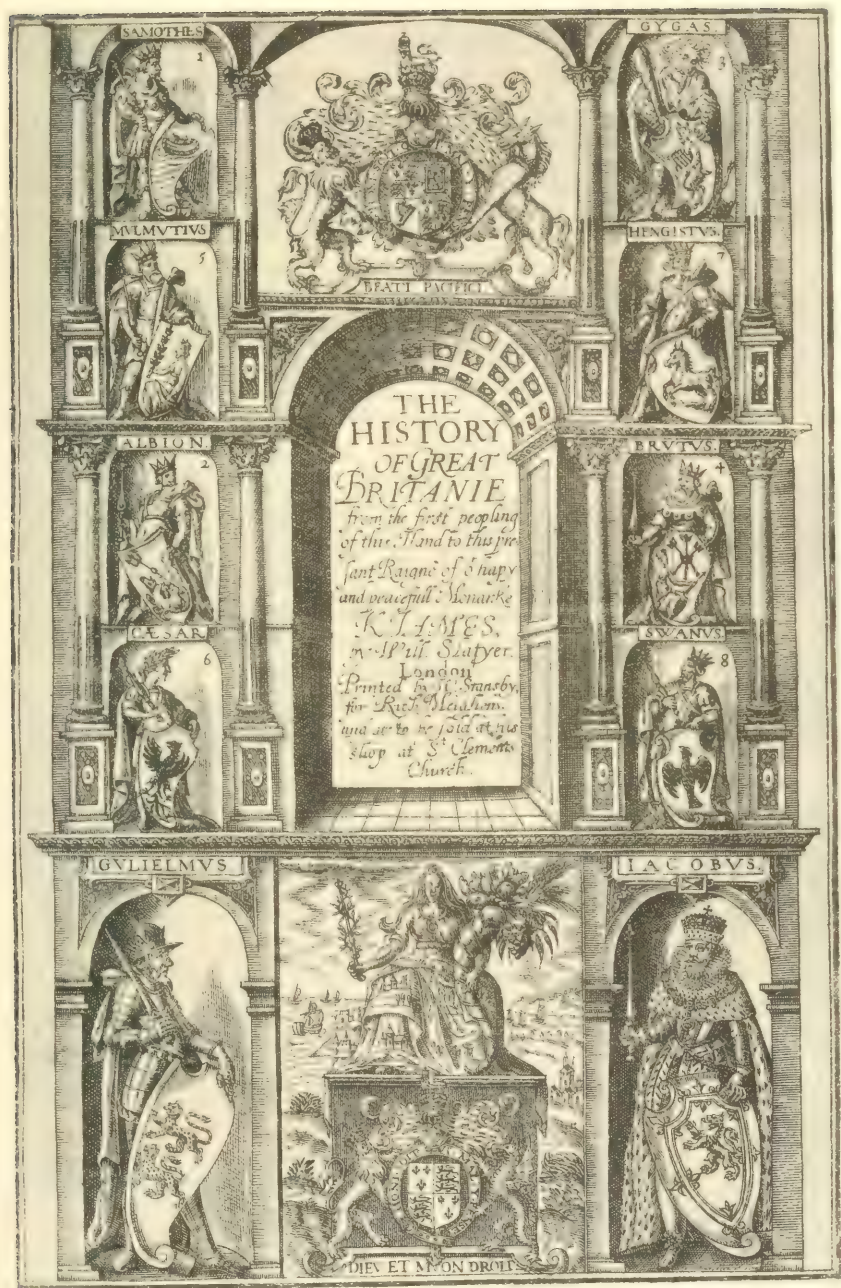 SAMOTHES
1
GYGAS.
3
BEATI PACIFICI
MVLMVTIVS
5
HENGISTVS.
7
THE
HISTORY
OF GREAT
BRITANIE
from the first peopling
of this Iland to this pre
sant Raigne of o hapy
and peacefull Monarke
K IAMES.
Will Slatyer.
London
Printed by W. Stansby,
for Rich Meighen.
and ar to be sold at his
shop at St Clements
Church.
ALBION.
2
BRVTVS.
4
CÆSAR
6
SWANVS.
8
GVLIELMVS
IACOBVS.
DIEV ET MON DROIT